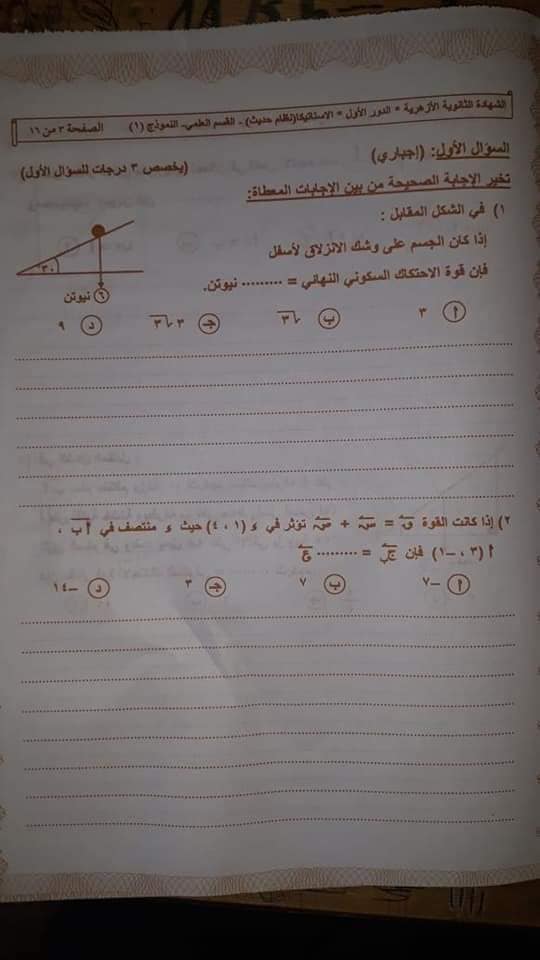 الشهادة الثانوية الأزهرية * الدور الأول * الاستاتيكا(نظام حديث) - القسم العلمي- النموذج (١) الصفحة ٣ من ١٦
السؤال الأول: (إجباري) (يخصص ٣ درجات للسؤال الأول)
تخير الإجابة الصحيحة من بين الإجابات المعطاة:
١) في الشكل المقابل :
إذا كان الجسم على وشك الانزلاق لأسفل
فإن قوة الاحتكاك السكوني النهائي = ......... نيوتن.
٣٠°
٦ نيوتن
أ ٣ ب √٣ جـ ٣√٣ د ٩
٢) إذا كانت القوة ق = س + ص تؤثر في ء (١ ، ٤) حيث ء منتصف في أ ب ،
أ (٣ ، -١) فإن جـب = ......... ع
أ -٧ ب ٧ جـ ٣ د -١٤